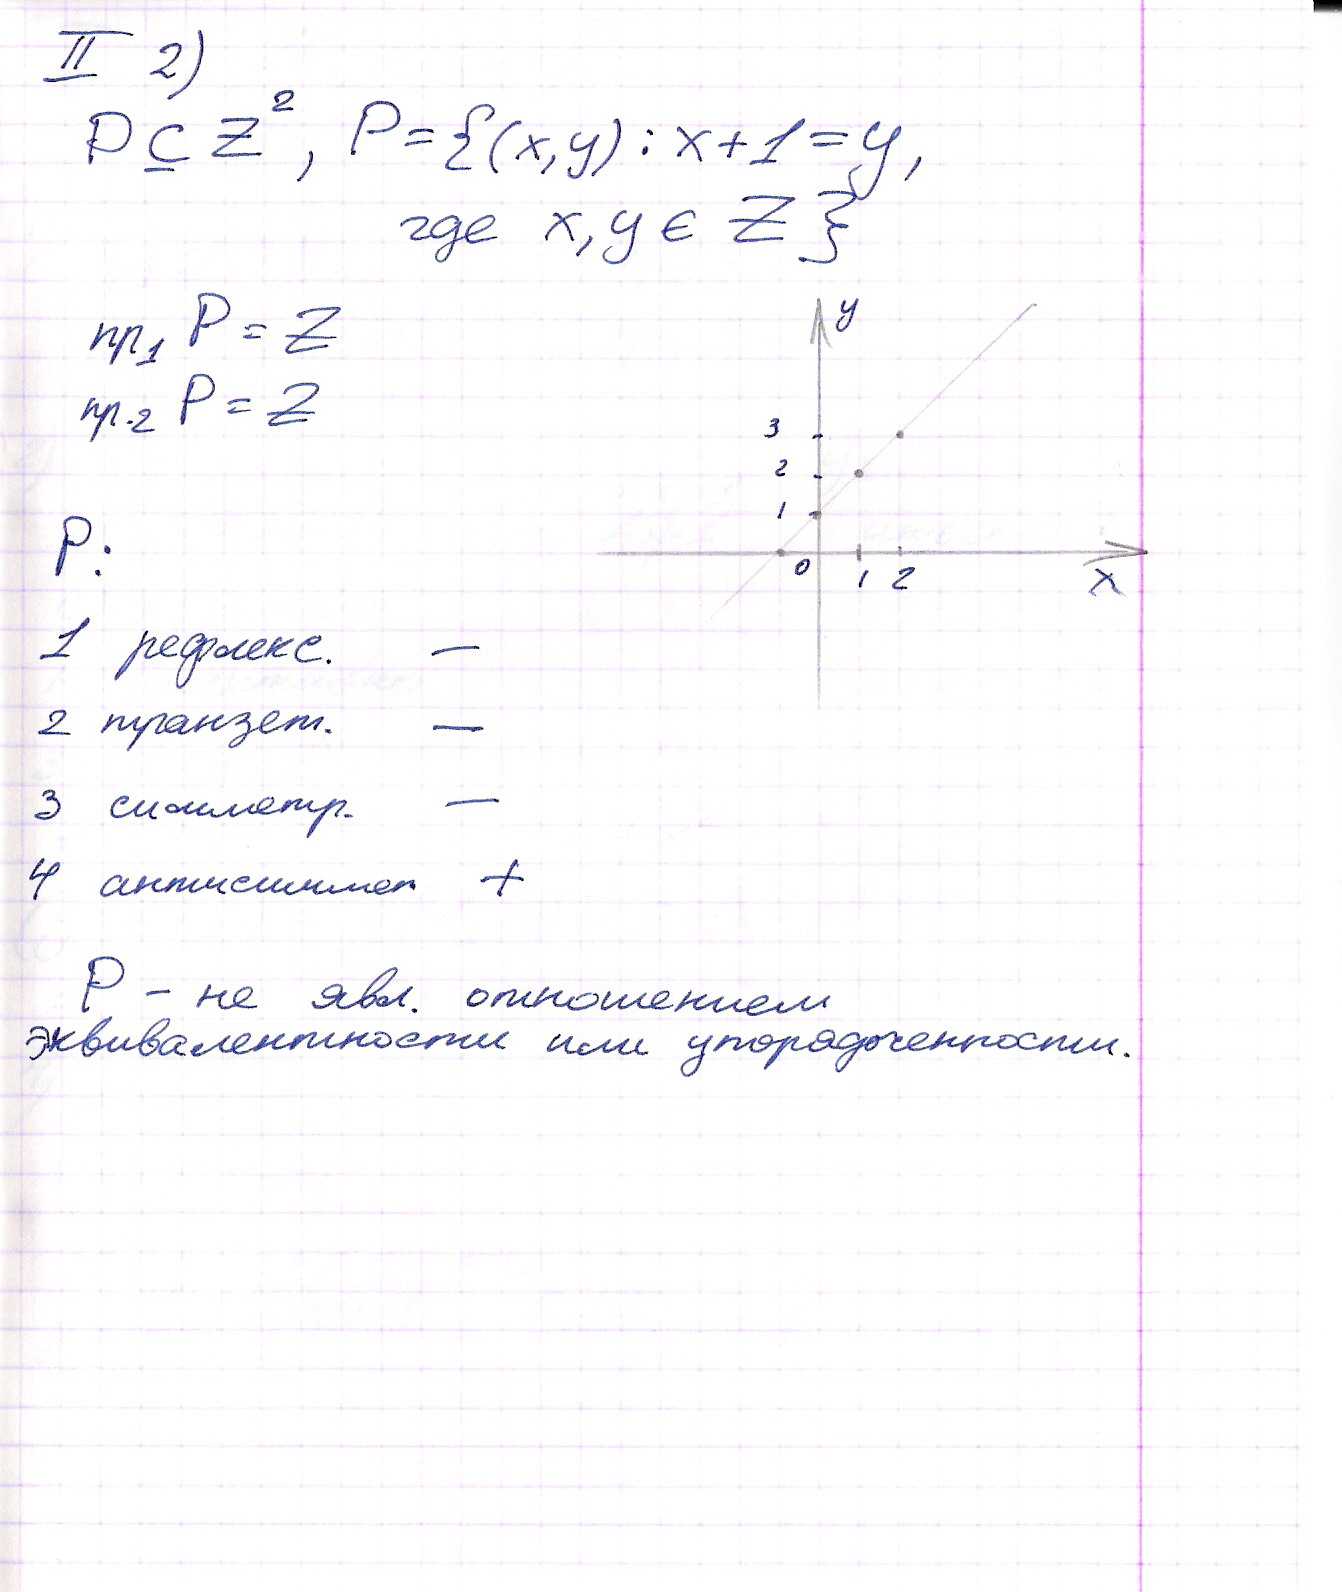 II 2)
P ⊆ Z², P = {(x,y) : x+1=y,
где x, y ∈ Z}
пр₁ P = Z
пр.₂ P = Z
y
3
2
1
0 1 2
x
P:
1 рефлекс. —
2 транзет. —
3 симметр. —
4 антисиммет +
P – не явл. отношением
эквивалентности или упорядоченности.